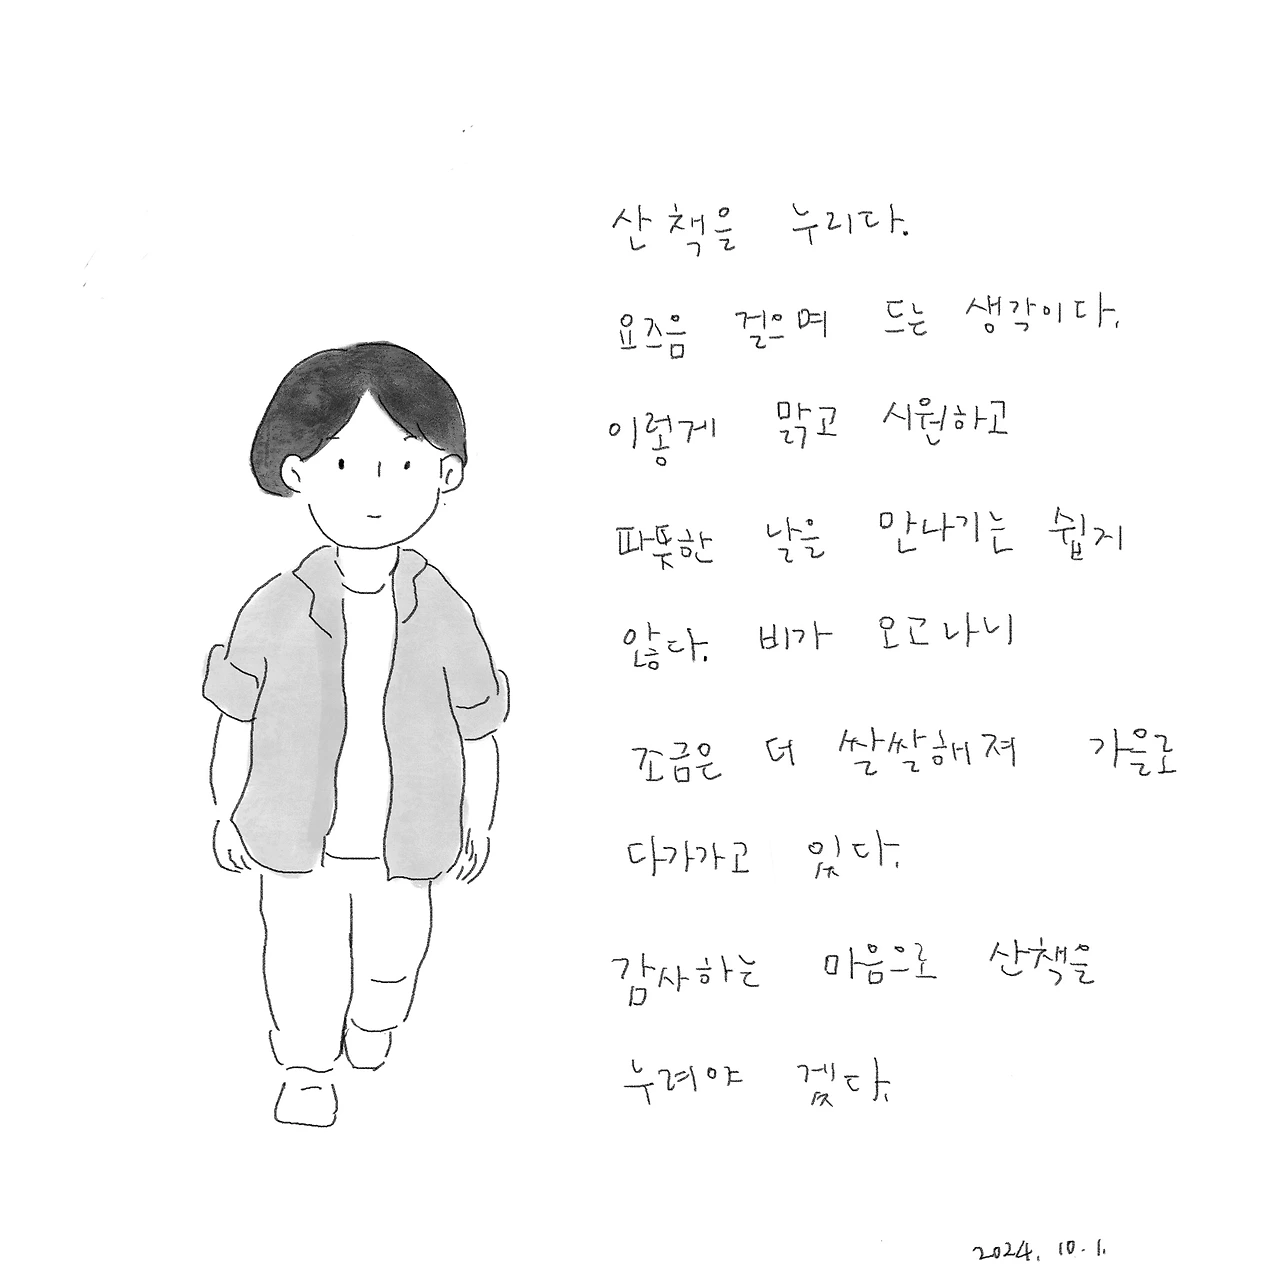 산책을 누리다.
요즈음 걸으며 드는 생각이다.
이렇게 맑고 시원하고
따뜻한 날을 만나기는 쉽지
않다. 비가 오고나니
조금은 더 쌀쌀해져 가을로
다가가고 있다.
감사하는 마음으로 산책을
누려야 겠다.
2024. 10. 1.